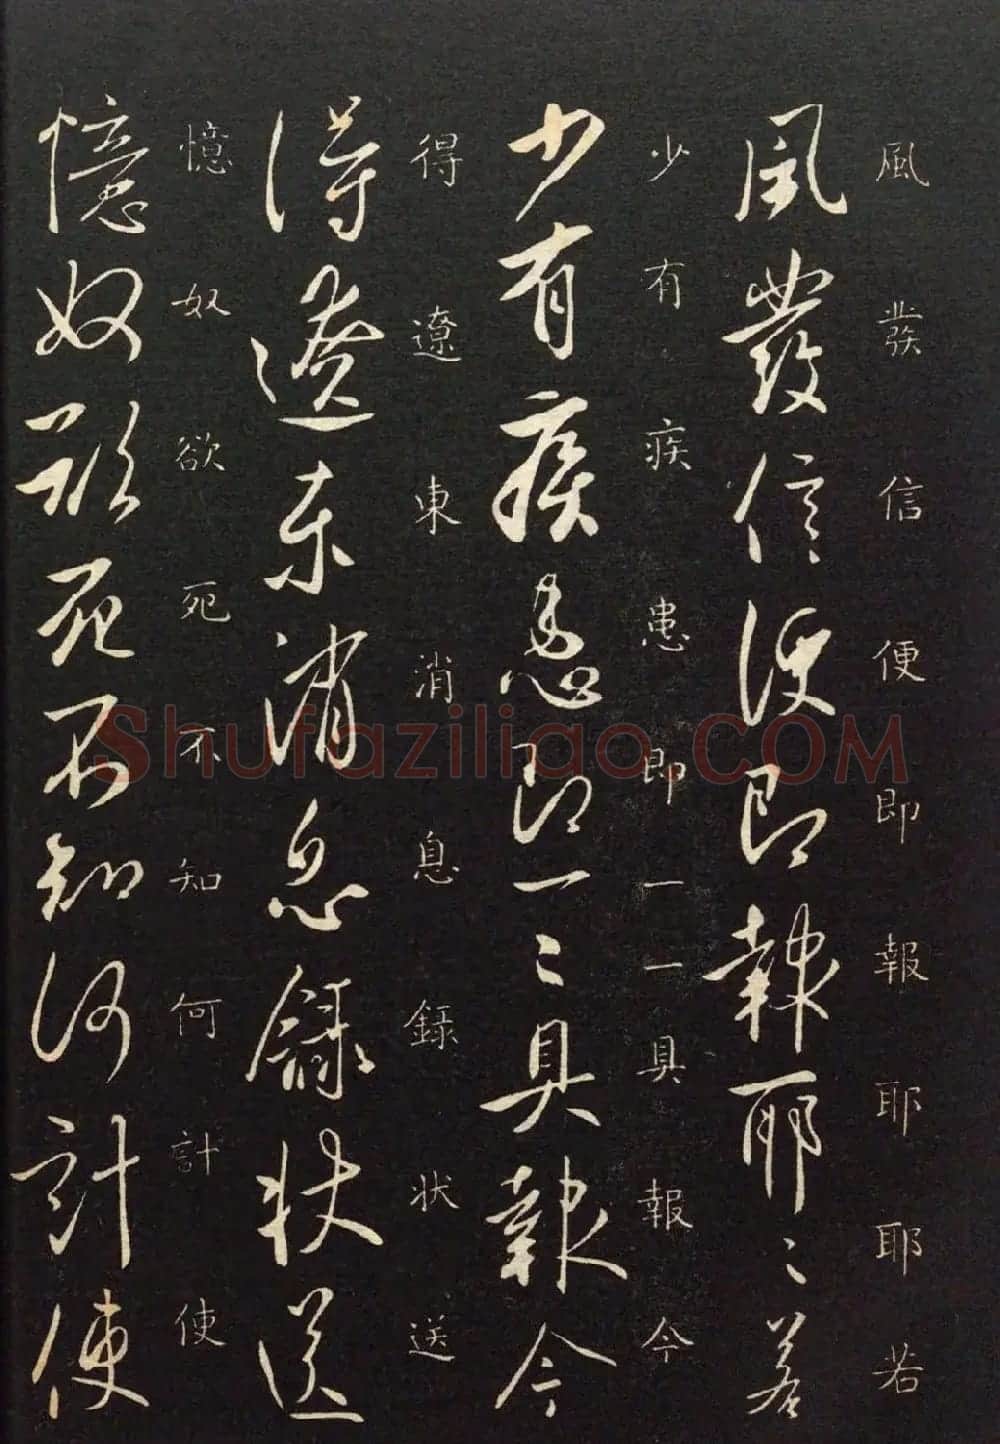 風發信便即報耶耶若
風發信便即報耶〻若
少有疾患即一一具報今
少有疾患即一〻具報今
得遼東消息録状送
得遼東消息録状送
憶奴欲死不知何計使
憶奴欲死不知何計使
Shufaziliao.COM